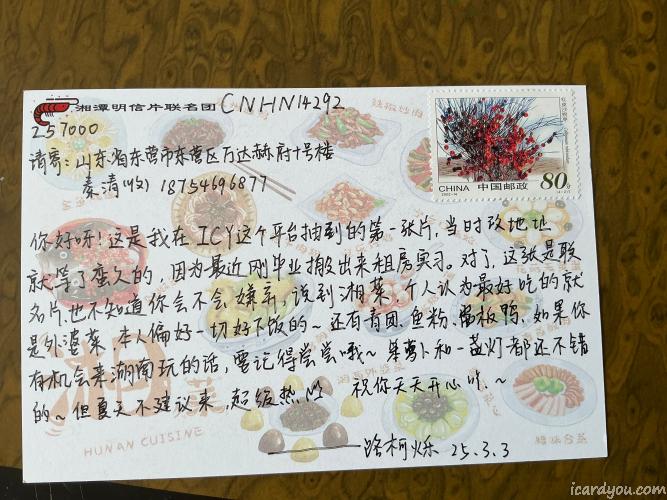 湘潭明信片联名团 CNHN14292
257000
请寄：山东省东营市东营区万达赫府十号楼
秦清(收) 18754696877
CHINA 中国邮政 80分
你好呀！这是我在ICY这个平台抽到的第一张片，当时改地址
就等了蛮久的，因为最近刚毕业搬出来租房实习。对了，这张是联
名片，也不知道你会不会嫌弃，说到湘菜，个人认为最好吃的就
是外婆菜，本人偏好一切好下饭的～还有青团、鱼粉、酱板鸭，如果你
有机会来湖南玩的话，要记得尝尝哦～果萝卜和一盏灯都还不错
的～但夏天不建议来，超级热 祝你天天开心咔～
HUNAN CUISINE
——路柯烁 25.3.3
icardyou.com